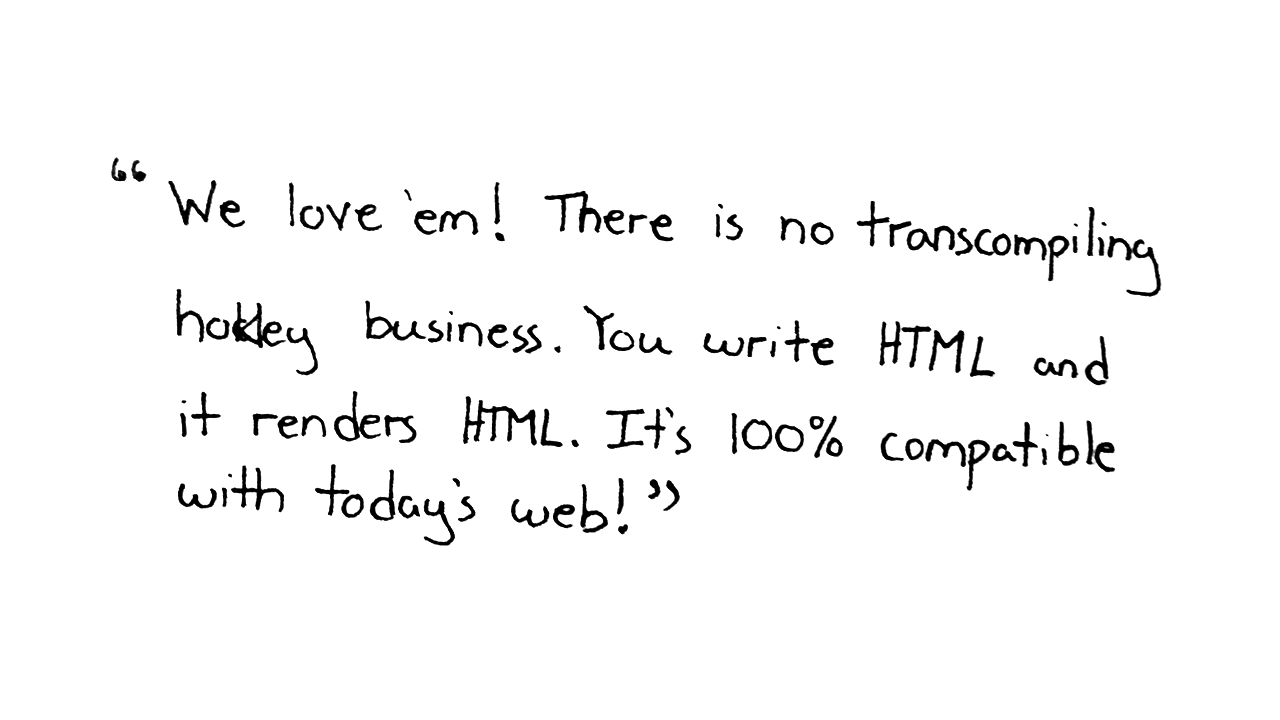 “We love 'em! There is no transcompiling
hokley business. You write HTML and
it renders HTML. It's 100% compatible
with today's web!”